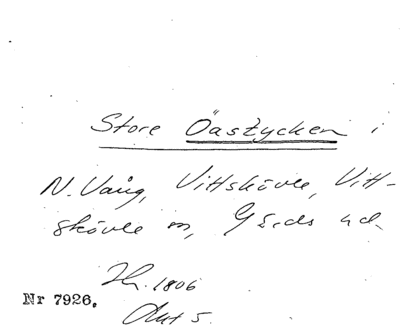 Store Öastycken i
N. Vång, Vittskövle, Vitt-
skövle sn, Gärds hd.
Hr. 1806
Nr 7926. Akt 5.